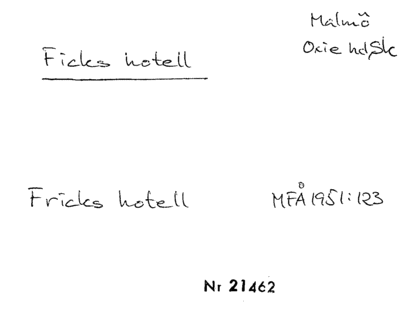 Malmö
Oxie hd, Sk
Ficks hotell
Fricks hotell
MFÅ 1951:123
Nr 21462